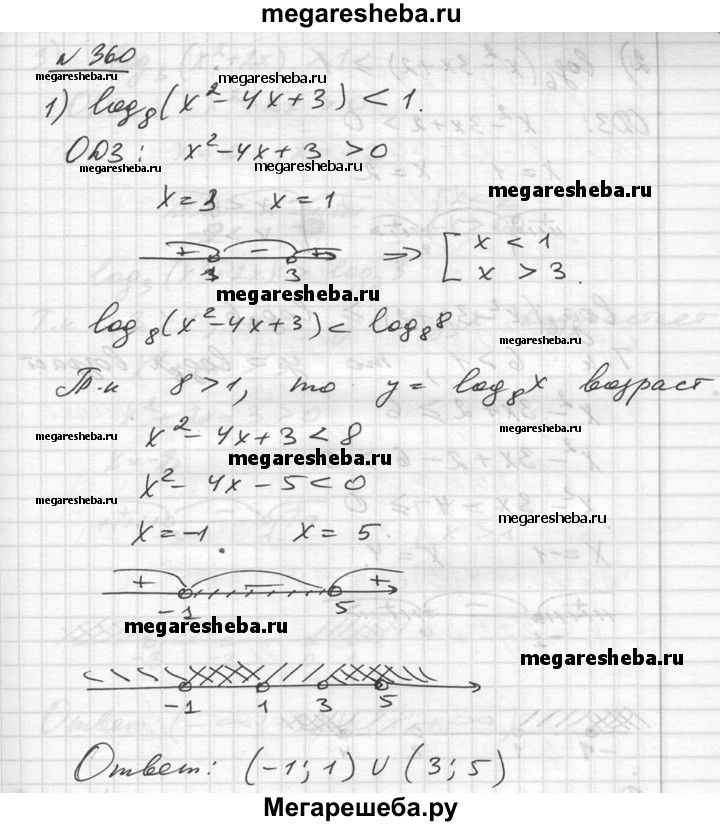 megaresheba.ru
N 360
megaresheba.ru megaresheba.ru megaresheba.ru
1) log₈(x² - 4x + 3) < 1.
ОДЗ: x² - 4x + 3 > 0
megaresheba.ru megaresheba.ru megaresheba.ru
x = 3 x = 1
+ - + ⇒ [ x < 1
3 x > 3.
megaresheba.ru
log₈(x² - 4x + 3) < log₈8
megaresheba.ru
Т.к 8 > 1, то y = log₈x возраст.
x² - 4x + 3 < 8
megaresheba.ru megaresheba.ru megaresheba.ru
x² - 4x - 5 < 0
megaresheba.ru megaresheba.ru
x = -1 x = 5.
+ - +
-1 5
megaresheba.ru
megaresheba.ru
-1 1 3 5
Ответ: (-1; 1) ∪ (3; 5)
Мегарешеба.ру